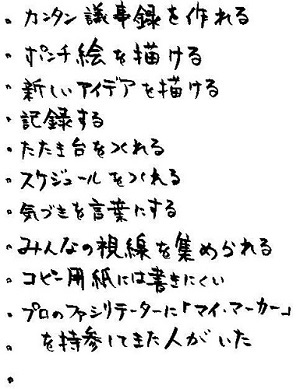 ・カンタン議事録を作れる
・ポンチ絵を描ける
・新しいアイデアを描ける
・記録する
・たたき台をつくれる
・スケジュールをつくれる
・気づきを言葉にする
・みんなの視線を集められる
・コピー用紙には書きにくい
・プロのファシリテーターに「マイ・マーカー」
を持参してきた人がいた
・